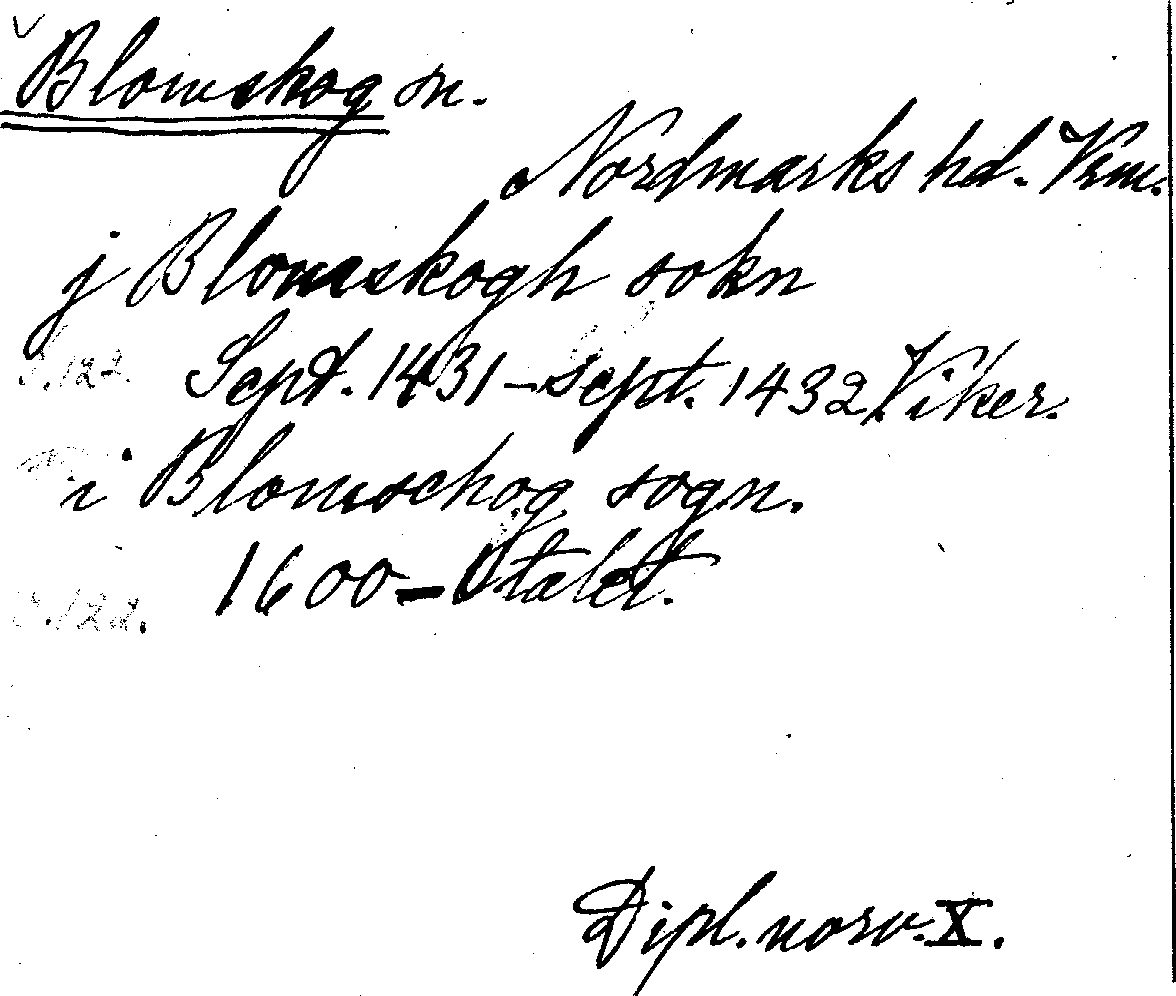 Blomskog sn.
Nordmarks hd. Vrm.
j Blomskogh sokn
S.122. Sept. 1431-sept. 1432 Viker.
i Blomschog sogn.
S.122. 1600-talet.
Dipl. norv. X.